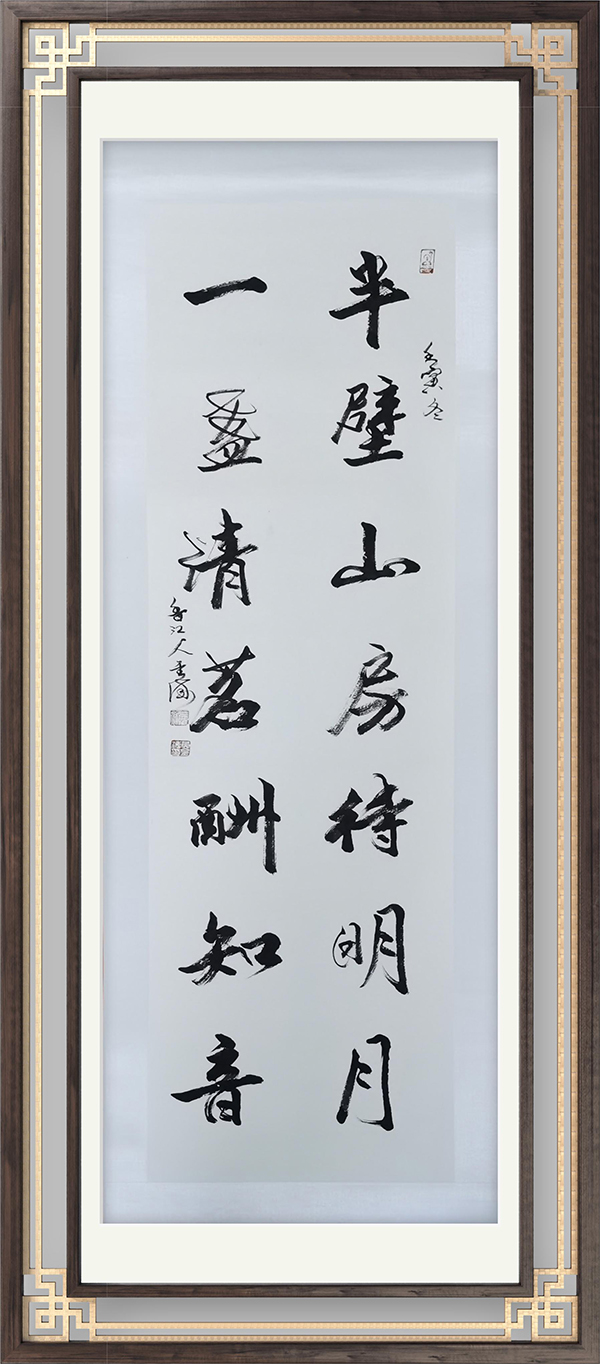 壬寅冬
半壁山房待明月
一盏清茗酬知音
香江人